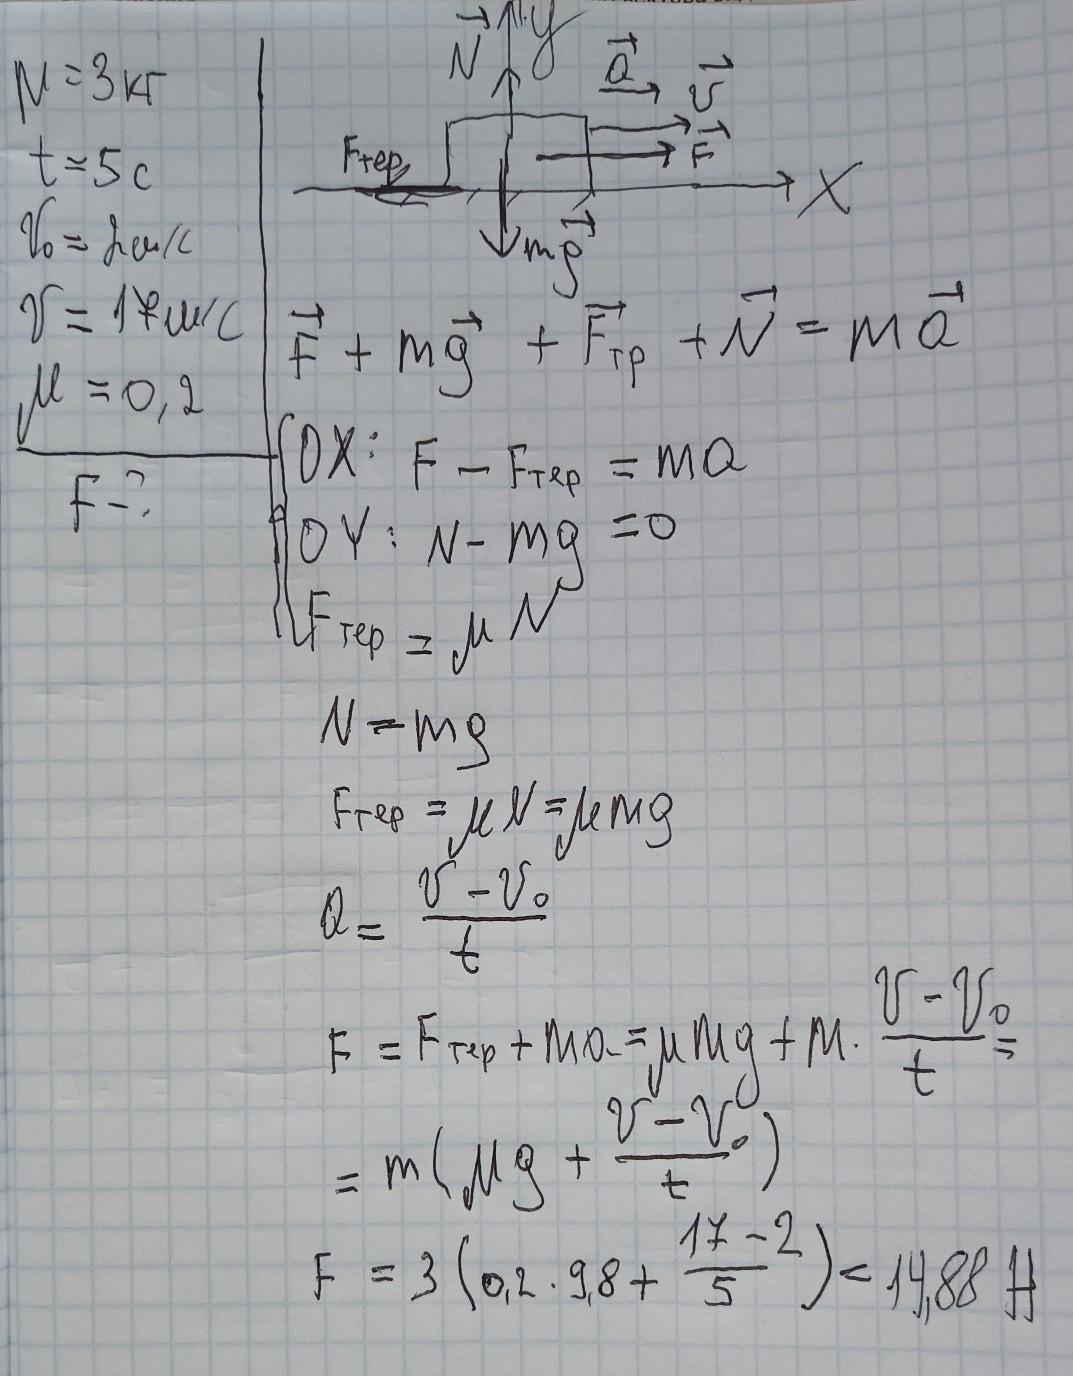 m = 3 кг
t = 5 с
v₀ = 2 м/с
v = 17 м/с
μ = 0,2
F - ?
N⃗ y
a⃗ v⃗
Fтер F⃗
X
mg⃗
F⃗ + mg⃗ + F⃗тр + N⃗ = ma⃗
OX: F - Fтер = ma
OY: N - mg = 0
Fтер = μN
N = mg
Fтер = μN = μmg
a = (v - v₀)/t
F = Fтер + ma = μmg + m · (v - v₀)/t =
= m(μg + (v - v₀)/t)
F = 3(0,2 · 9,8 + (17 - 2)/5) = 14,88 Н